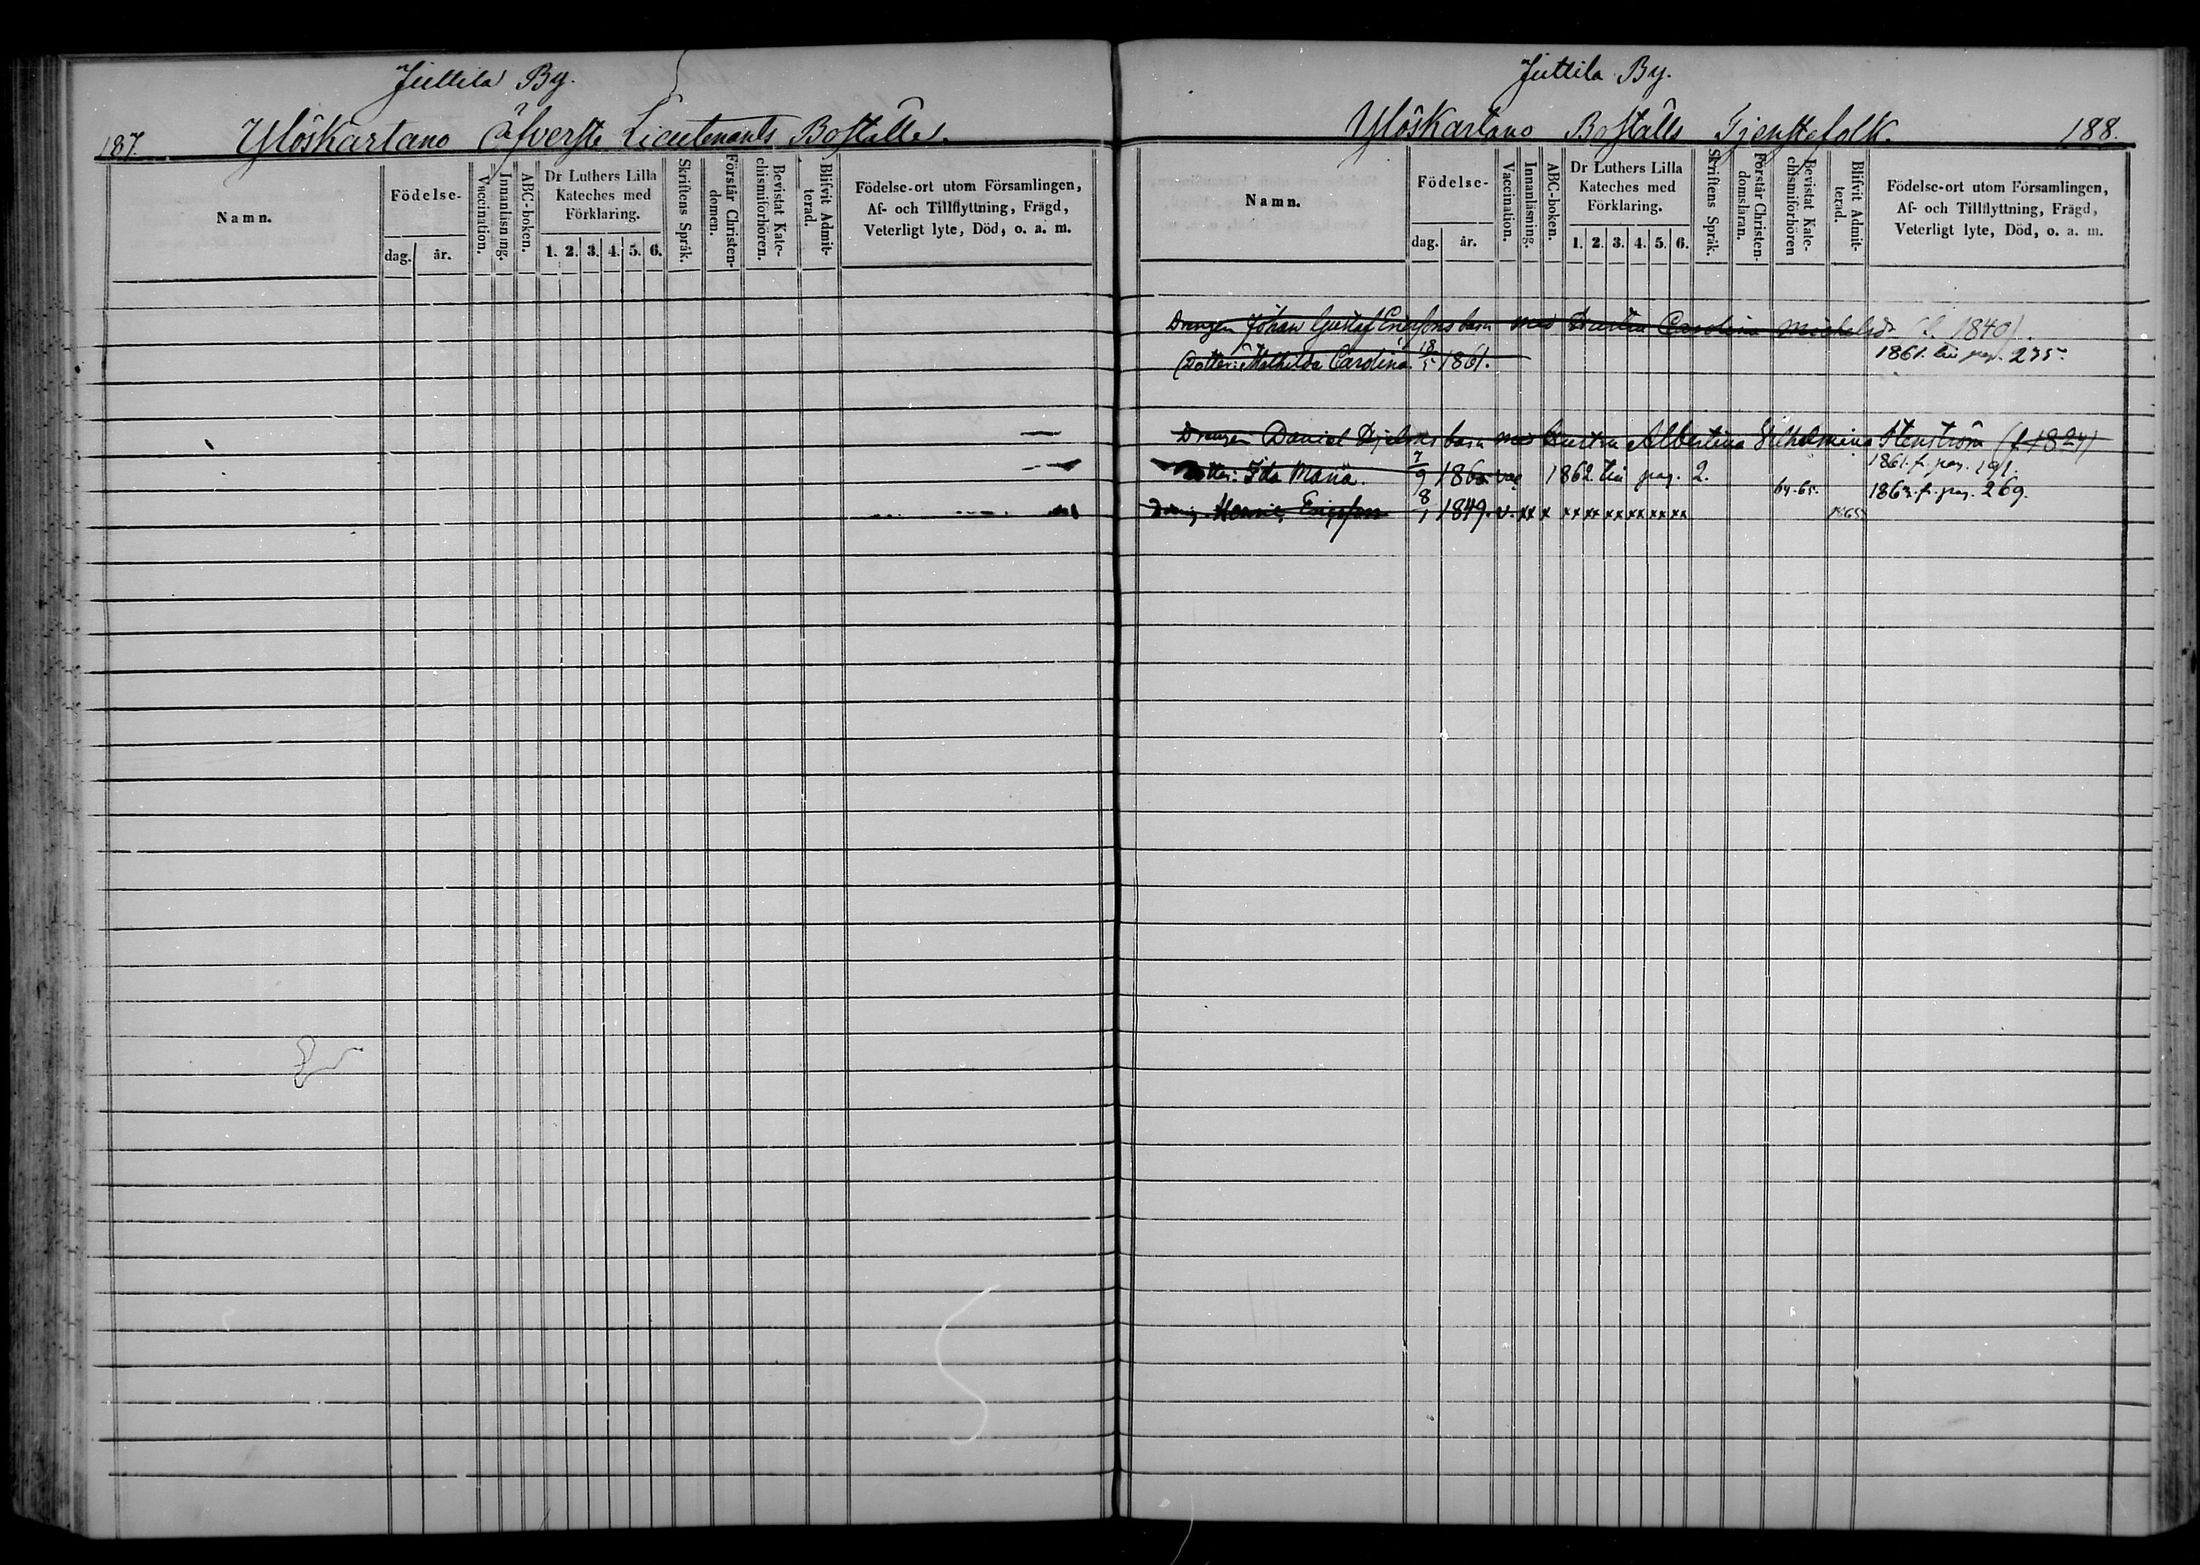 Juttila By.
187. Yloskartano Öfverste Lieutenants Boställe.
Namn.
Födelse-
dag. år.
Vaccination.
Innanläsning.
ABC-boken.
Dr Luthers Lilla Kateches med Förklaring.
1. 2. 3. 4. 5. 6.
Skriftens Språk.
Förstår Christendomen.
Bevistat Katechismiförhören.
Blifvit Admitterad.
Födelse-ort utom Församlingen,
Af- och Tillflyttning, Frägd,
Veterligt lyte, Död, o. a. m.
Juttila By.
Yloskartano Boställs Tjenstefolk. 188.
Namn.
Födelse-
dag. år.
Vaccination.
Innanläsning.
ABC-boken.
Dr Luthers Lilla
Kateches med
Förklaring.
1. 2. 3. 4. 5. 6.
Skriftens Språk.
Förstår Christendomsläran.
Bevistat Katechismiförhören
Blifvit Admitterad.
Födelse-ort utom Församlingen,
Af- och Tillflyttning, Frägd,
Veterligt lyte, Död, o. a. m.
Drängen Johan Gustaf Ericssons barn med Hustru Carolina Michelsdr (f. 1840)
Dotter: Mathilda Carolina 18/5 1861. 1861. till pag. 275.
Drängen Daniel barn med Hustru Albertina Vilhelmina Stenström (f. 1824)
1861. f. pag. 191.
Dotter: Ida Maria. 7/9 1860 vac 1862 till pag. 2.
64-65. 1863. f. pag. 269.
Dräng Henric Ericsson 8/1 1849. v. xx x xx xx xx xx xx xx 1865